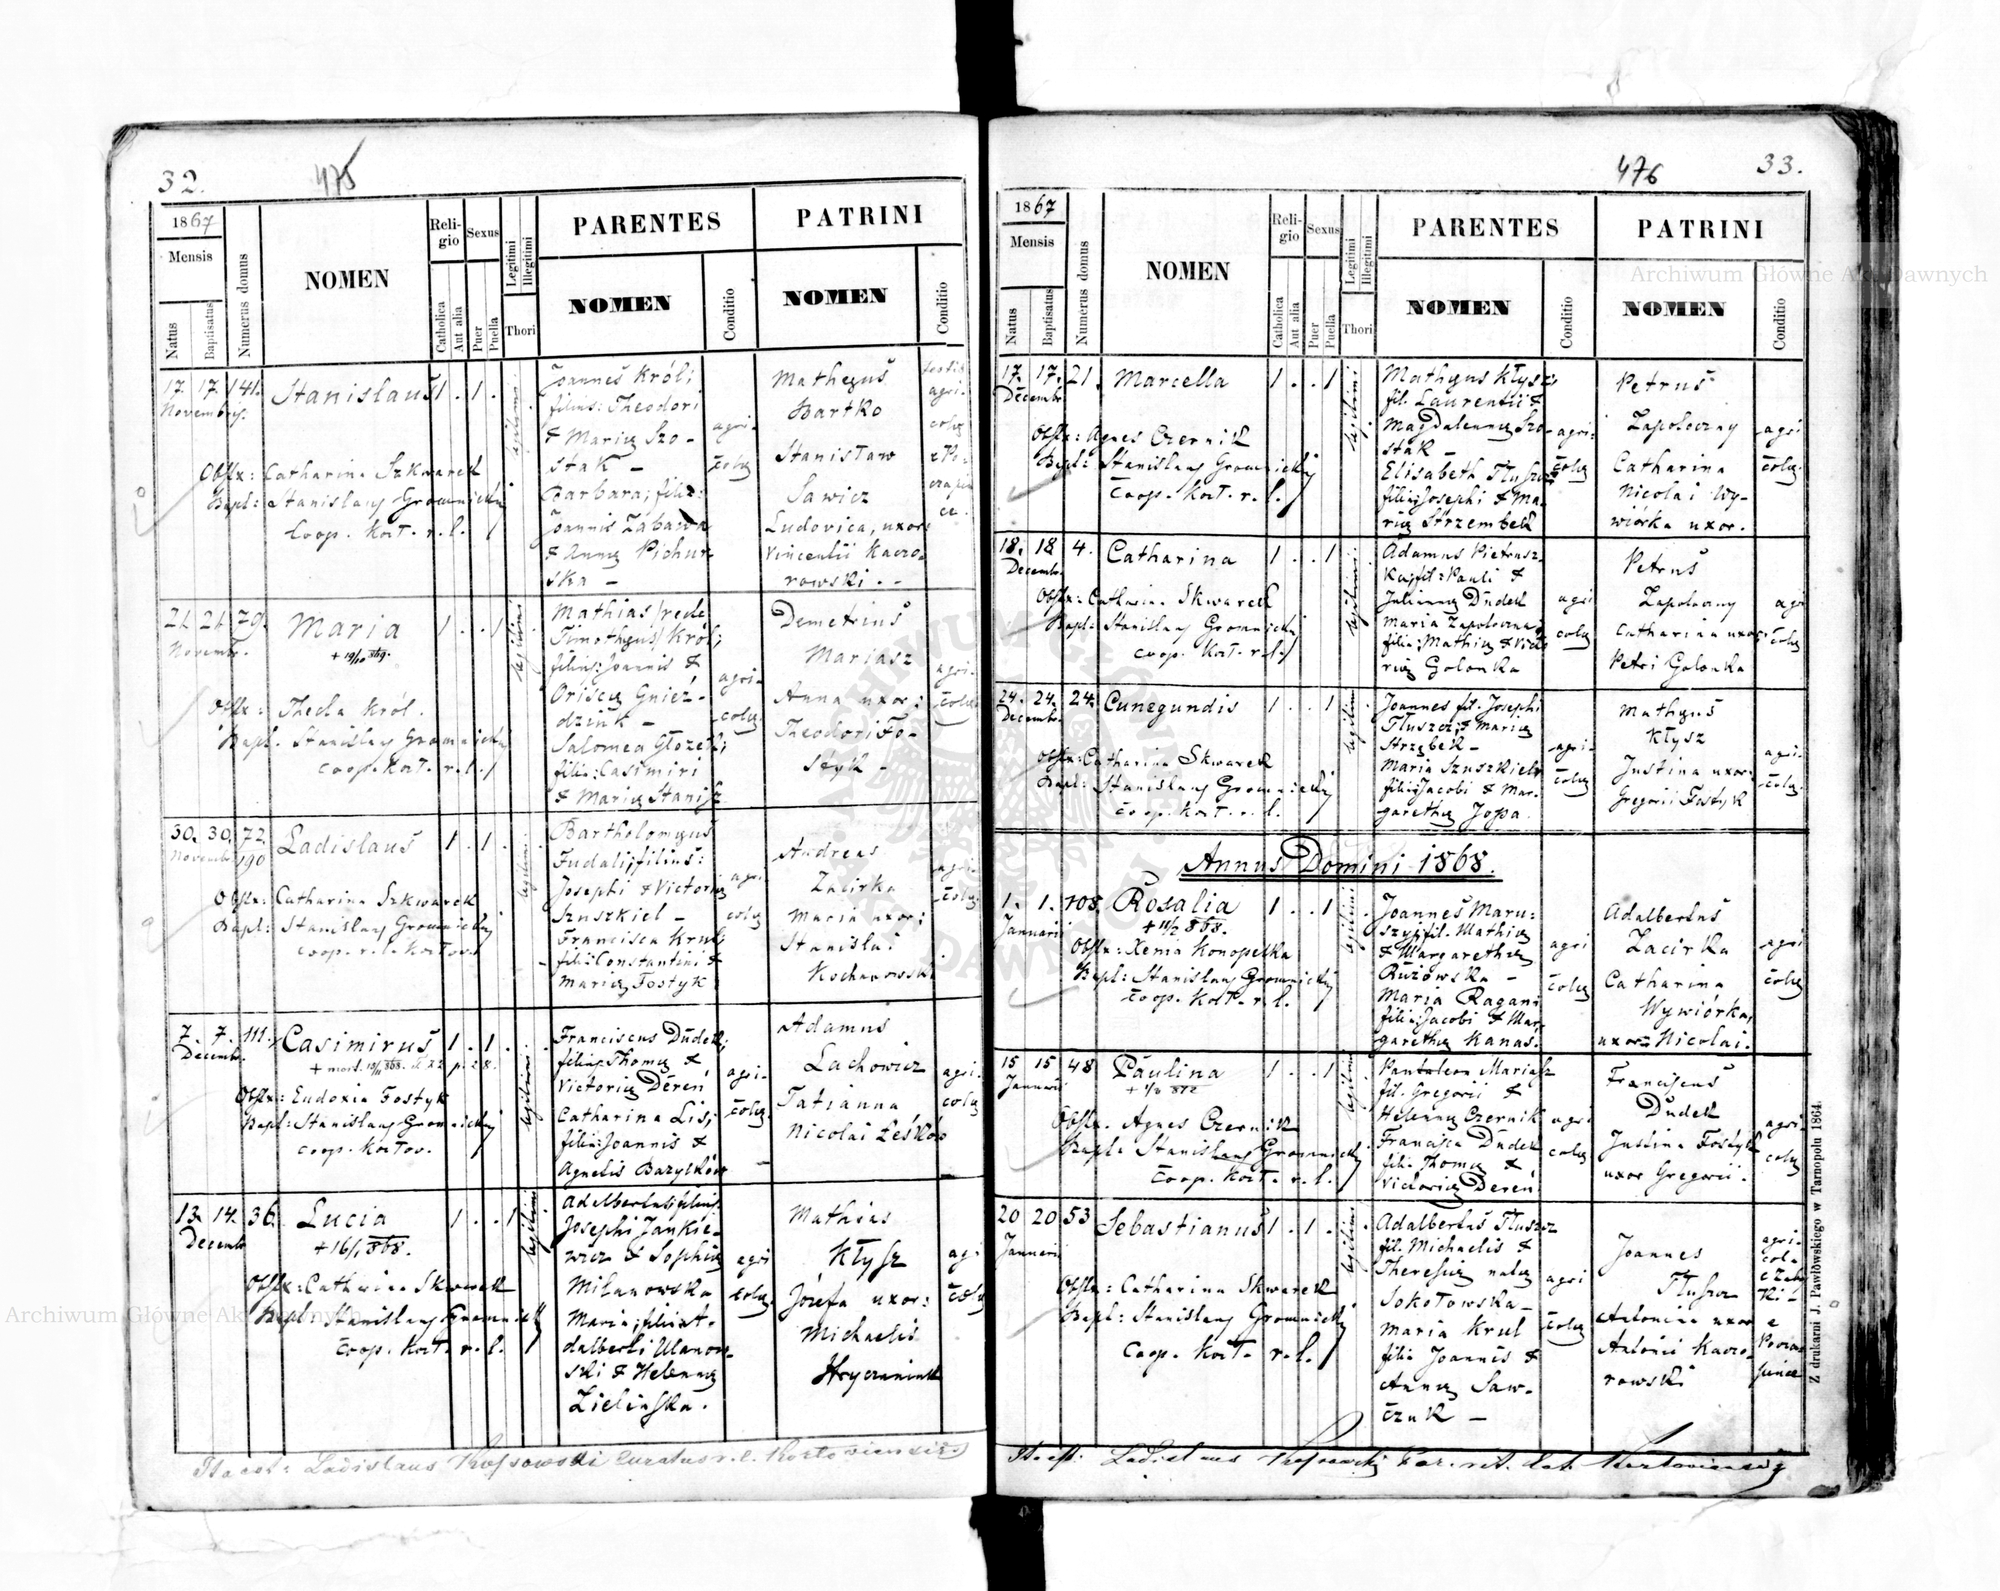 32.
475
1867
Mensis
Natus
Baptisatus
Numerus domus
NOMEN
Religio
Catholica
Aut alia
Sexus
Puer
Puella
Legitimi
Illegitimi
Thori
PARENTES
NOMEN
Conditio
PATRINI
NOMEN
Conditio
17. 17. 141. Stanislaus 1 . 1 .
Novembr.
Obstx: Catharina Szkwarek
Bapt: Stanislaus Gromnicki
Coop. Kozł. r. l.
legitimi
Joannes Król;
filius: Theodori
& Mariæ Szo-
stak –
Barbara, filia:
Joannis Zabawa
& Annæ Pichur-
ska –
agri-
colæ
Mathæus
Bartko
Stanisław
Sawicz
Ludovica, uxor:
Vincentii Kaczo-
rowski . -
agri-
colæ
21. 21. 79. Maria 1 . . 1
Novemb.
+ 19/10 869.
Obstx: Thecla Król.
Bapt. Stanislaus Gromnicki
coop. Kozł. r. l.
legitimi
Mathias /recte
Timotheus/ Król,
filius: Joannis &
Orisiæ Gnież-
dziuk –
Salomea Głozek;
filia: Casimiri
& Mariæ Stanisz
agri-
colæ
Demetrius
Mariasz
Anna uxor:
Theodori Fo-
styk -
agri-
colæ
30. 30. 72. Ladislaus 1 . 1 .
Novemb. 190
Obstx: Catharina Szkwarek
Bapt: Stanislaus Gromnicki
coop. r. l. Kozłov.
legitimi
Bartholomæus
Fudali, filius:
Josephi & Victoriæ
Szuszkiel –
Francisca Krul;
filia: Constantini &
Mariæ Fostyk
agri-
colæ
Andreas
Zacirka
Maria uxor:
Stanislai
Kochanowski
agri-
colæ
7. 7. 111. Casimirus 1 . 1 .
Decemb.
Obstx: Eudoxia Fostyk
Bapt: Stanislaus Gromnicki
coop. Kozłov.
legitimi
Franciscus Dudek;
filius Thomæ &
Victoriæ Dereń
Catharina Lis;
filia: Joannis &
Agnetis Bazylków
agri-
colæ
Adamus
Lachowicz
Tatianna
Nicolai Leśków
agri-
colæ
13. 14. 36. Lucia 1 . . 1
Decemb
+ 16/1 868.
Obstx: Catharina Skwarek
Bapt: Stanislaus Gromnicki
coop. Kozł. r. l.
legitimi
Adelbertus, filius
Josephi Jankie-
wicz & Sophiæ
Milanowska
Maria, filia A-
dalberti Ulanow-
ski & Helenæ
Zielińska.
agri
colæ.
Mathias
Kłysz
Józefa uxor:
Michaelis
Hryczaniuk
agri
colæ
Ladislaus
Curatus r. l. Kozłoviensis
33.
476
1867
Mensis
Natus
Baptisatus
Numerus domus
NOMEN
Religio
Catholica
Aut alia
Sexus
Puer
Puella
Legitimi
Illegitimi
Thori
PARENTES
NOMEN
Conditio
PATRINI
NOMEN
Conditio
17. 17. 21. Marcella 1 . . 1
Decemb.
Obstx: Agnes Czernik
Bapt: Stanislaus Gromnicki
Coop. Kozł. r. l.
legitimi
Mathæus Kłysz;
fil. Laurentii &
Magdalenæ Szo-
stak –
Elisabeth Tłuszcz
filia: Josephi & Ma-
riæ Strzembek
agri-
colæ
Petrus
Zapoloczny
Catharina
Nicolai Wy-
wiórka uxor.
agri
colæ.
18. 18 4. Catharina 1 . . 1
Decemb.
Obstx: Catharina Skwarek
Bapt: Stanislaus Gromnicki
coop. Kozł. r. l.
legitimi
Adamus Pietrusz-
ka, fil: Pauli &
Julianna Dudek
Maria Zapoloczna
filia: Mathiæ & Victo-
riæ Golonka
agri
colæ
Petrus
Zapoloczny
Catharina uxor:
Petri Golonka
agri
colæ
24. 24. 24. Cunegundis 1 . . 1
Decemb.
Obstx: Catharina Skwarek
Bapt: Stanislaus Gromnicki
coop. Kozł. r. l.
legitimi
Joannes fil. Josephi
Tłuszcz & Mariæ
Strzębek –
Maria Szuszkiel
filia: Jacobi & Mar-
garethæ Jopa.
agri-
colæ
Mathæus
Kłysz
Justina uxor
Gregorii Fostyk
agri-
colæ.
Annus Domini 1868.
1. 1. 108. Rosalia 1 . . 1
Januarii
+ 11/2 868.
Obstx: Xenia Konopelka
Bapt: Stanislaus Gromnicki
Coop. Kozł. r. l.
legitimi
Joannes Maru-
szyj, fil. Mathiæ
& Margarethæ
Ruzowska –
Maria Ragan:
filia: Jacobi & Mar-
garethæ Kanas.
agri
colæ
Adalbertus
Zacirka
Catharina
Wywiórka,
uxor Nicolai.
agri
colæ
15 15 48 Paulina 1 . . 1
Januarii
Obstx. Agnes Czernik
Bapt: Stanislaus Gromnicki
Coop. Kozł. r. l.
legitimi
Pantaleon Mariasz
fil. Gregorii &
Helenæ Czernik
Francisca Dudek
filia Thomæ &
Victoriæ Dereń
agri
colæ
Franciscus
Dudek
Justina Fostyk
uxor Gregorii.
agri-
colæ
20 20 53 Sebastianus 1 . 1 .
Januarii
Obstx: Catharina Skwarek
Bapt: Stanislaus Gromnicki
Coop. Kozł. r. l.
legitimi
Adalbertus Tłuszcz
fil. Michaelis &
Theresiæ natæ
Sokołowska –
Maria Krul
filia Joannis &
Annæ Saw-
czuk –
agri
colæ
Joannes
Tłuszcz
Antonina uxor
Antonii Kaczo-
rowski
agri-
colæ
Ladislaus
Z drukarni J. Pawłowskiego w Tarnopolu 1864.
Archiwum Główne Akt Dawnych
Archiwum Główne Akt Dawnych
ARCHIWUM GŁÓWNE AKT DAWNYCH